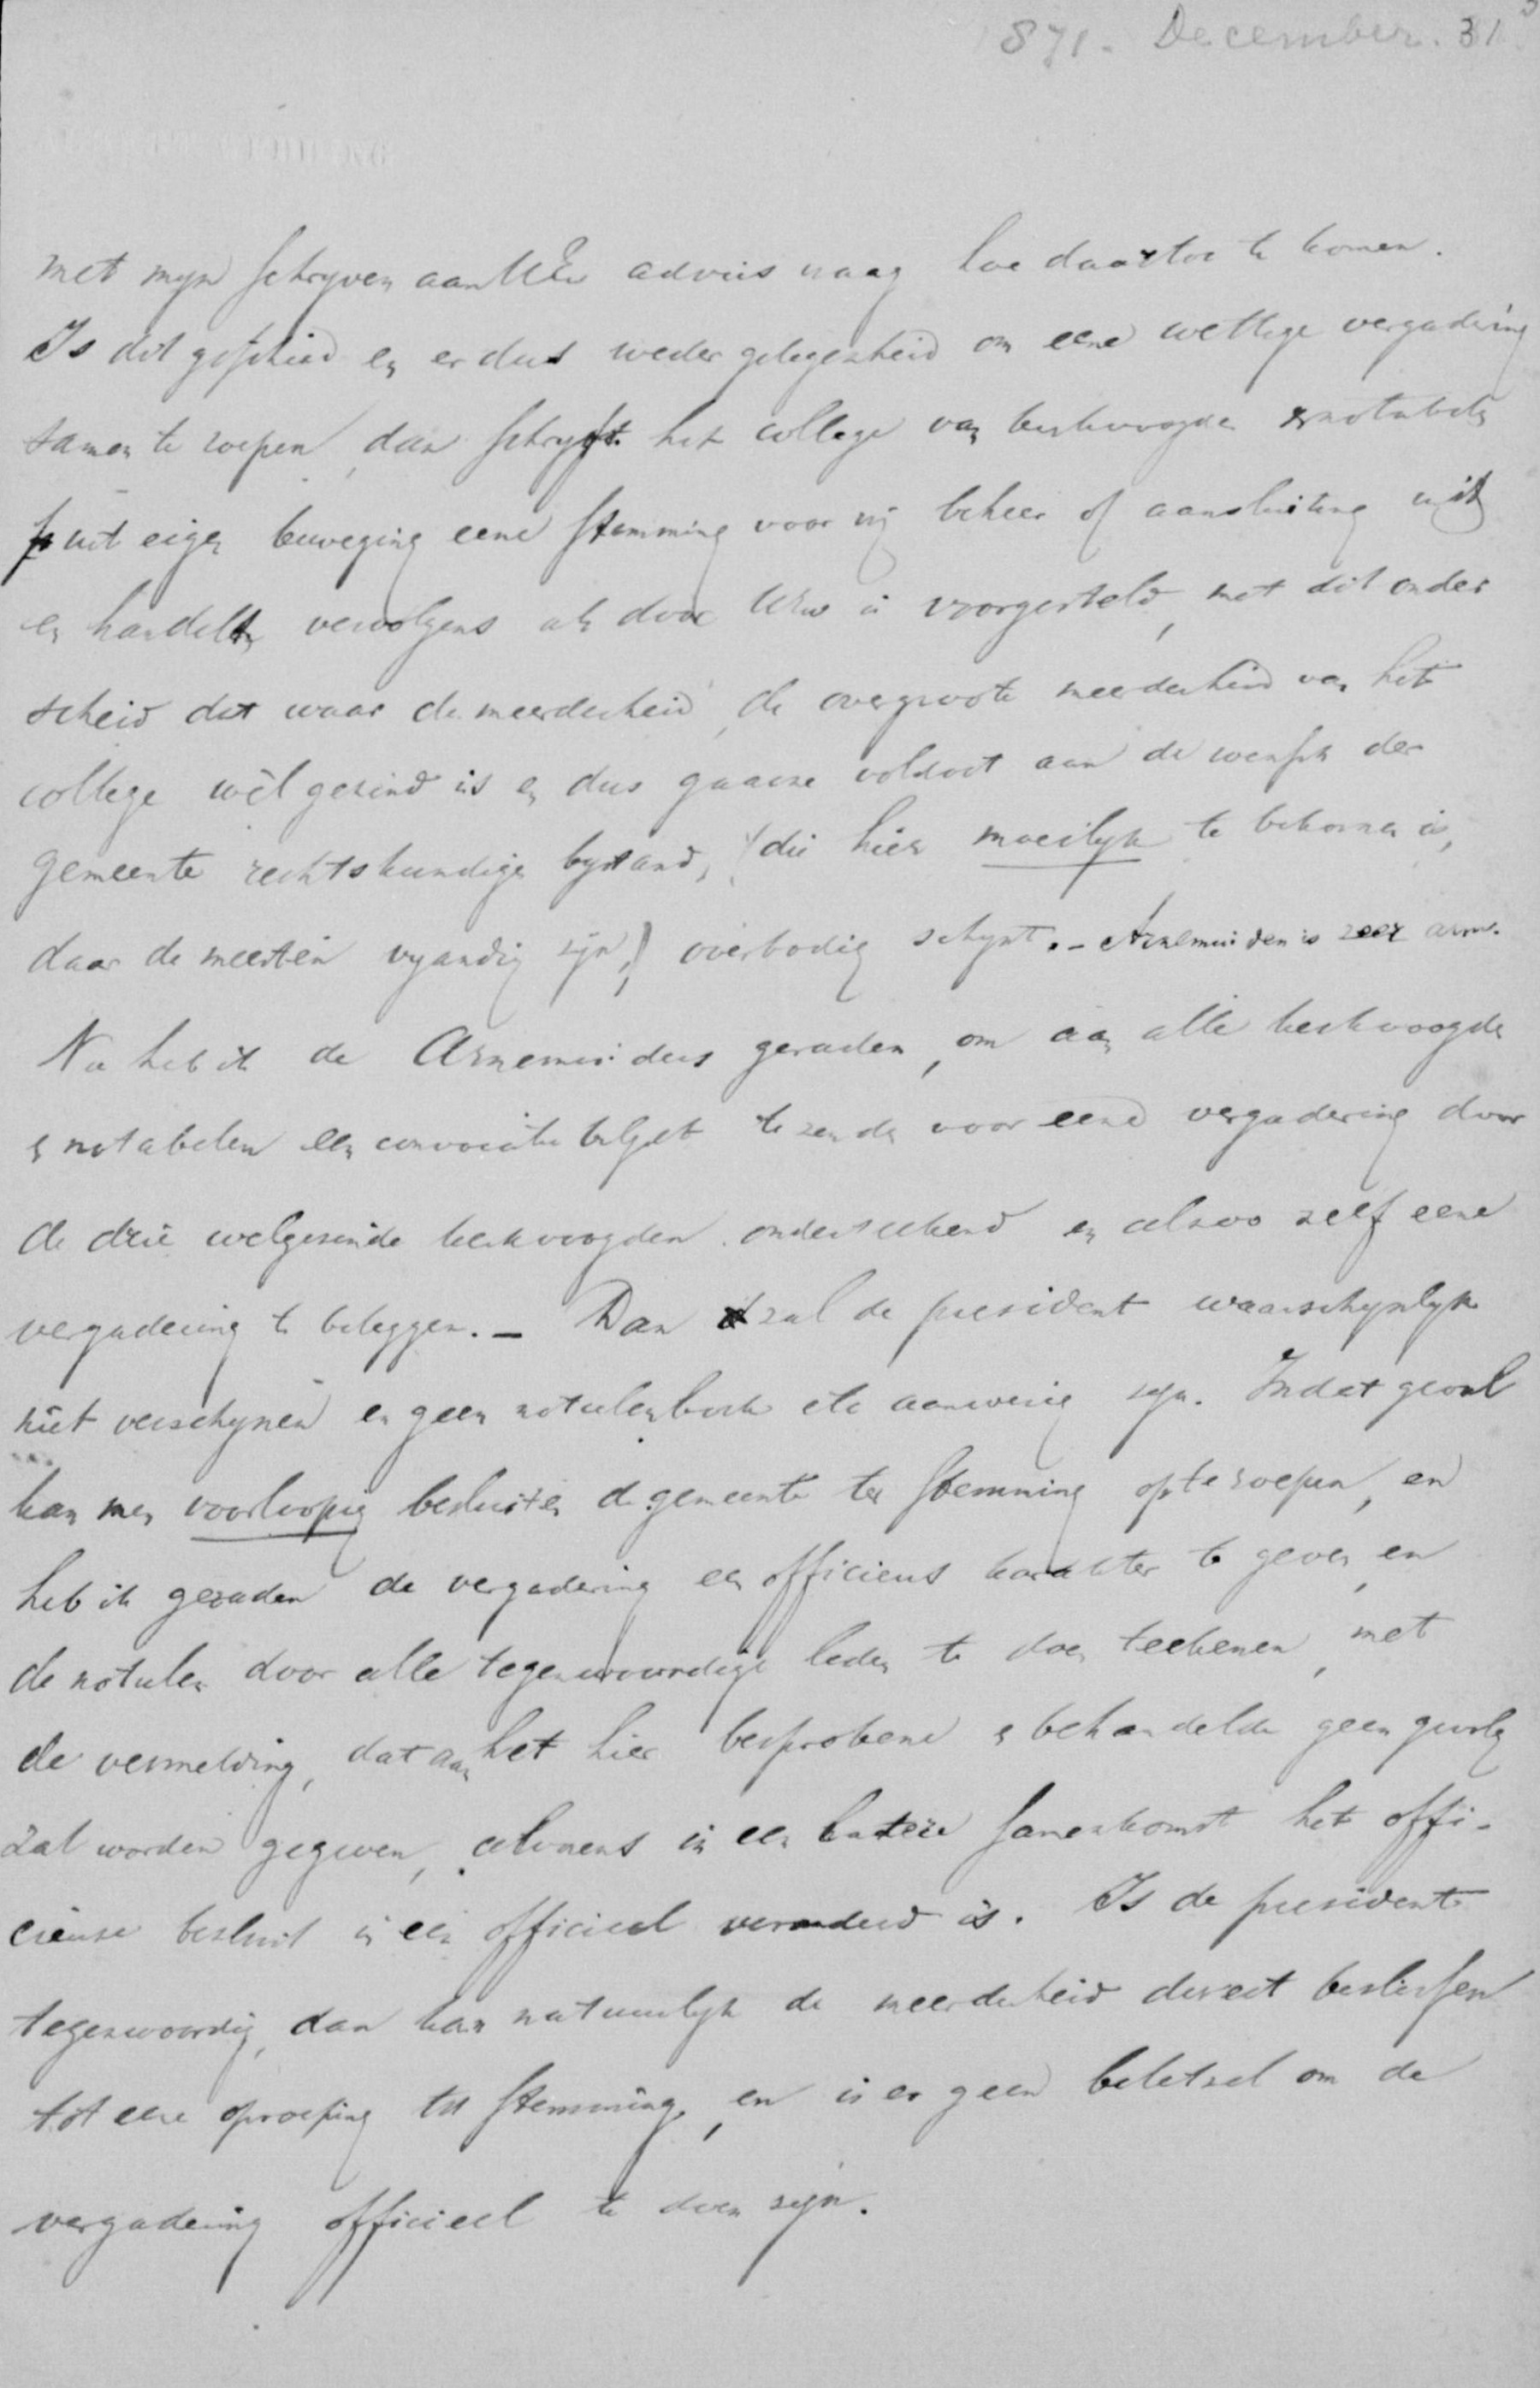 1871. December. 31
met myn schryven aan UEw advies vraag hoe daartoe te komen.
Is dit geschied en er dus weder gelegenheid om eene wettige vergadering
samen te roepen, dan schryft het college van kerkvoogden & notabelen
uit eigen beweging eene stemming voor vrij beheer of aansluiting uit
en handelt vervolgens als door UEw is voorgesteld, met dit onder
scheid dat waar de meerderheid, de overgroote meerderheid van het
college wèl gezind is en dus gaarne voldoet aan de wensch der
gemeente rechtskundige bystand, (die hier moeilyk te bekomen is,
daar de meesten vyandig zijn,) overbodig schynt. - Arnemuiden is zeer arm.
Nu heb ik de Arnemuiders geraden, om aan alle kerkvoogden
& notabelen een convocatie biljet te zenden voor eene vergadering door
de drie welgezinde kerkvoogden onderteekend en alzoo zelf eene
vergadering te beleggen. - Dan zal de president waarschynlyk
niet verschynen en geen notulenboek etc aanwezig zyn. In dat geval
kan men voorloopig besluiten de gemeente ter stemming op te roepen, en
heb ik geraden de vergadering een officieus karakter te geven, en
de notulen door alle tegenwoordige leden te doen teekenen, met
de vermelding, dat aan het hier besprokene & behandelde geen gevolg
zal worden gegeven, alvorens in een latere samenkomst het offi-
cieuse besluit in een officieel veranderd is. Is de president
tegenwoordig, dan kan natuurlyk de meerderheid direct beslissen
tot eene oproeping ter stemming, en is er geen beletsel om de
vergadering officieel te doen zyn.